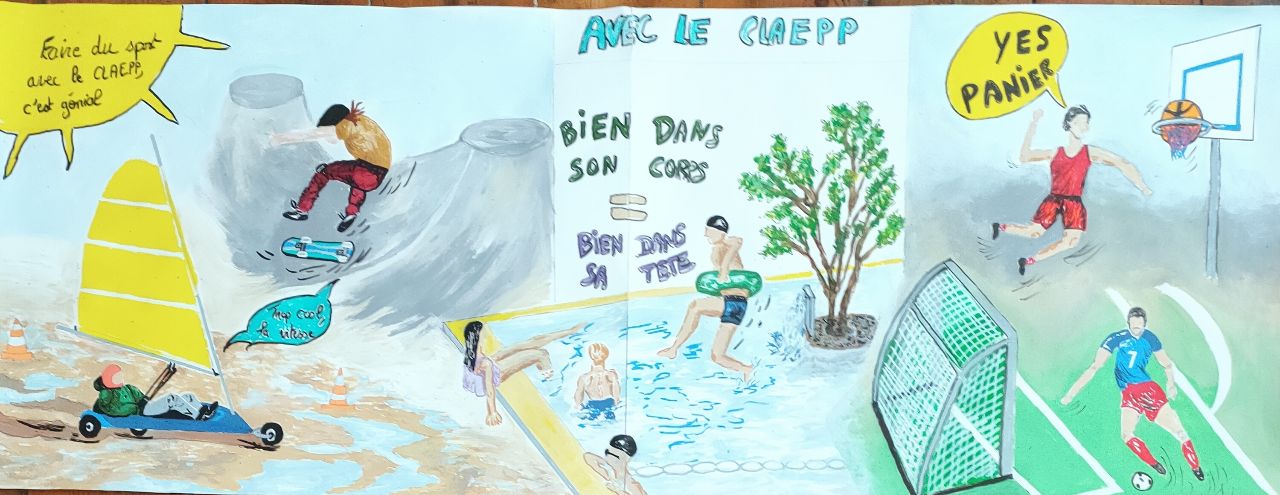 Faire du sport
avec le CLAEPP,
c'est génial
Trop cool,
la vitesse
AVEC LE CLAEPP
BIEN DANS
SON CORPS
=
BIEN DANS
SA TETE
YES
PANIER
7